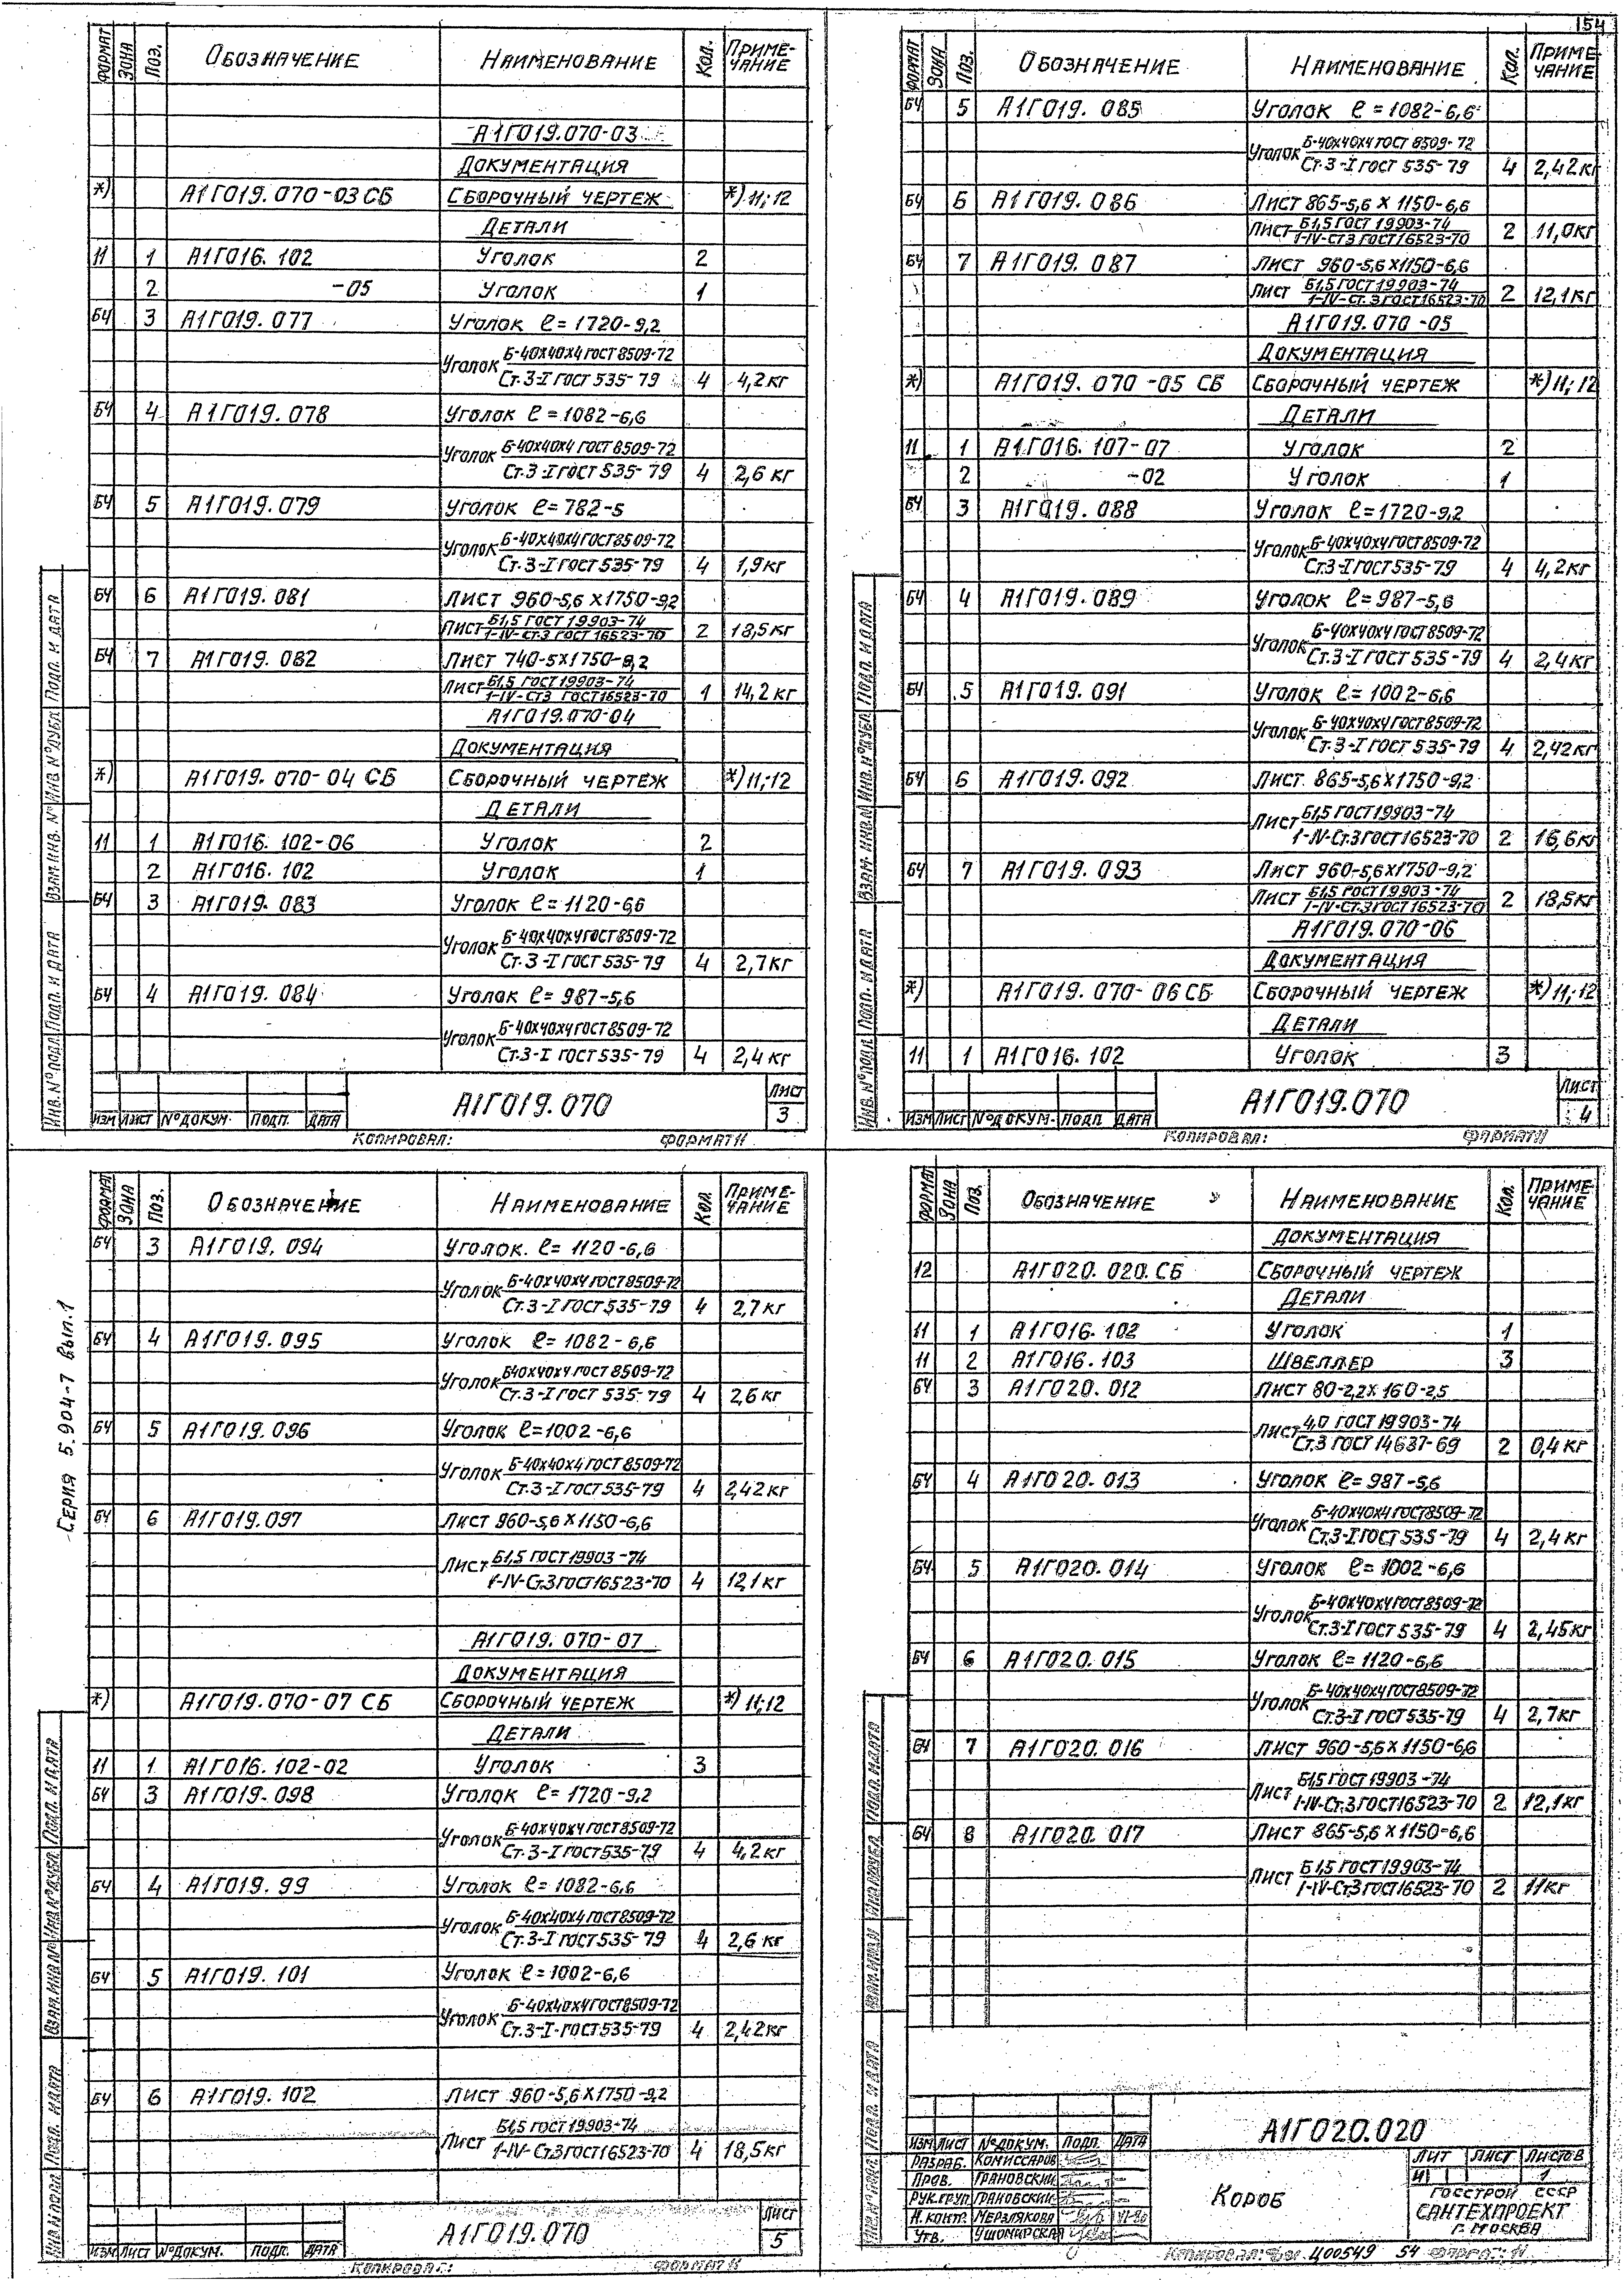 154
ФОРМАТ ЗОНА ПОЗ. ОБОЗНАЧЕНИЕ НАИМЕНОВАНИЕ КОЛ. ПРИМЕ-
ЧАНИЕ
А1Г019.070-03
ДОКУМЕНТАЦИЯ
*) А1Г019.070-03 СБ СБОРОЧНЫЙ ЧЕРТЕЖ *) 11; 12
ДЕТАЛИ
11 1 А1Г016.102 Уголок 2
2 -05 Уголок 1
БЧ 3 А1Г019.077 Уголок ℓ=1720-9,2
Уголок Б-40х40х4 ГОСТ 8509-72
Ст.3-I ГОСТ 535-79 4 4,2 кг
БЧ 4 А1Г019.078 Уголок ℓ=1082-6,6
Уголок Б-40х40х4 ГОСТ 8509-72
Ст.3-I ГОСТ 535-79 4 2,6 кг
БЧ 5 А1Г019.079 Уголок ℓ=782-5
Уголок Б-40х40х4 ГОСТ 8509-72
Ст.3-I ГОСТ 535-79 4 1,9 кг
БЧ 6 А1Г019.081 Лист 960-5,6х1750-9,2
Лист Б1,5 ГОСТ 19903-74
1-IV-Ст3 ГОСТ 16523-70 2 18,5 кг
БЧ 7 А1Г019.082 Лист 740-5х1750-9,2
Лист Б1,5 ГОСТ 19903-74
1-IV-Ст3 ГОСТ 16523-70 1 14,2 кг
А1Г019.070-04
ДОКУМЕНТАЦИЯ
*) А1Г019.070-04 СБ СБОРОЧНЫЙ ЧЕРТЕЖ *) 11; 12
ДЕТАЛИ
11 1 А1Г016.102-06 Уголок 2
2 А1Г016.102 Уголок 1
БЧ 3 А1Г019.083 Уголок ℓ=1120-6,6
Уголок Б-40х40х4 ГОСТ 8509-72
Ст.3-I ГОСТ 535-79 4 2,7 кг
БЧ 4 А1Г019.084 Уголок ℓ=987-5,6
Уголок Б-40х40х4 ГОСТ 8509-72
Ст.3-I ГОСТ 535-79 4 2,4 кг
ИНВ. № ПОДЛ. ПОДП. И ДАТА ВЗАМ. ИНВ. № ИНВ. № ДУБЛ. ПОДП. И ДАТА
ИЗМ ЛИСТ № ДОКУМ. ПОДП. ДАТА
А1Г019.070
ЛИСТ
3
КОПИРОВАЛ: ФОРМАТ 11
ФОРМАТ ЗОНА ПОЗ. ОБОЗНАЧЕНИЕ НАИМЕНОВАНИЕ КОЛ. ПРИМЕ-
ЧАНИЕ
БЧ 5 А1Г019.085 Уголок ℓ=1082-6,6
Уголок Б-40х40х4 ГОСТ 8509-72
Ст.3-I ГОСТ 535-79 4 2,42 кг
БЧ 6 А1Г019.086 Лист 865-5,6 х 1150-6,6
Лист Б1,5 ГОСТ 19903-74
1-IV-Ст3 ГОСТ 16523-70 2 11,0 кг
БЧ 7 А1Г019.087 Лист 960-5,6х1150-6,6
Лист Б1,5 ГОСТ 19903-74
1-IV-Ст.3 ГОСТ 16523-70 2 12,1 кг
А1Г019.070-05
ДОКУМЕНТАЦИЯ
*) А1Г019.070-05 СБ СБОРОЧНЫЙ ЧЕРТЕЖ *) 11; 12
ДЕТАЛИ
11 1 А1Г016.107-07 Уголок 2
2 -02 Уголок 1
БЧ 3 А1Г019.088 Уголок ℓ=1720-9,2
Уголок Б-40х40х4 ГОСТ 8509-72
Ст.3-I ГОСТ 535-79 4 4,2 кг
БЧ 4 А1Г019.089 Уголок ℓ=987-5,6
Уголок Б-40х40х4 ГОСТ 8509-72
Ст.3-I ГОСТ 535-79 4 2,4 кг
БЧ 5 А1Г019.091 Уголок ℓ=1002-6,6
Уголок Б-40х40х4 ГОСТ 8509-72
Ст.3-I ГОСТ 535-79 4 2,42 кг
БЧ 6 А1Г019.092 Лист 865-5,6х1750-9,2
Лист Б1,5 ГОСТ 19903-74
1-IV-Ст.3 ГОСТ 16523-70 2 16,6 кг
БЧ 7 А1Г019.093 Лист 960-5,6х1750-9,2
Лист Б1,5 ГОСТ 19903-74
1-IV-Ст.3 ГОСТ 16523-70 2 18,5 кг
А1Г019.070-06
ДОКУМЕНТАЦИЯ
*) А1Г019.070-06 СБ СБОРОЧНЫЙ ЧЕРТЕЖ *) 11; 12
ДЕТАЛИ
11 1 А1Г016.102 Уголок 3
ИНВ. № ПОДЛ. ПОДП. И ДАТА ВЗАМ. ИНВ. № ИНВ. № ДУБЛ. ПОДП. И ДАТА
ИЗМ ЛИСТ № ДОКУМ. ПОДП ДАТА
А1Г019.070
ЛИСТ
4
КОПИРОВАЛ: ФОРМАТ 11
Серия 5.904-7 вып.1
ФОРМАТ ЗОНА ПОЗ. ОБОЗНАЧЕНИЕ НАИМЕНОВАНИЕ КОЛ. ПРИМЕ-
ЧАНИЕ
БЧ 3 А1Г019.094 Уголок. ℓ=1120-6,6
Уголок Б-40х40х4 ГОСТ 8509-72
Ст.3-I ГОСТ 535-79 4 2,7 кг
БЧ 4 А1Г019.095 Уголок ℓ=1082-6,6
Уголок Б40х40х4 ГОСТ 8509-72
Ст.3-I ГОСТ 535-79 4 2,6 кг
БЧ 5 А1Г019.096 Уголок ℓ=1002-6,6
Уголок Б-40х40х4 ГОСТ 8509-72
Ст.3-I ГОСТ 535-79 4 2,42 кг
БЧ 6 А1Г019.097 Лист 960-5,6 х 1150-6,6
Лист Б1,5 ГОСТ 19903-74
1-IV-Ст.3 ГОСТ 16523-70 4 12,1 кг
А1Г019.070-07
ДОКУМЕНТАЦИЯ
*) А1Г019.070-07 СБ СБОРОЧНЫЙ ЧЕРТЕЖ *) 11; 12
ДЕТАЛИ
11 1 А1Г016.102-02 Уголок 3
БЧ 3 А1Г019.098 Уголок ℓ=1720-9,2
Уголок Б-40х40х4 ГОСТ 8509-72
Ст.3-I ГОСТ 535-79 4 4,2 кг
БЧ 4 А1Г019.99 Уголок ℓ=1082-6,6
Уголок Б-40х40х4 ГОСТ 8509-72
Ст.3-I ГОСТ 535-79 4 2,6 кг
БЧ 5 А1Г019.101 Уголок ℓ=1002-6,6
Уголок Б-40х40х4 ГОСТ 8509-72
Ст.3-I-ГОСТ 535-79 4 2,42 кг
БЧ 6 А1Г019.102 Лист 960-5,6х1750-9,2
Лист Б1,5 ГОСТ 19903-74
1-IV-Ст.3 ГОСТ 16523-70 4 18,5 кг
ИНВ. № ПОДЛ. ПОДП. И ДАТА ВЗАМ. ИНВ. № ИНВ. № ДУБЛ. ПОДП. И ДАТА
ИЗМ ЛИСТ № ДОКУМ. ПОДП. ДАТА
А1Г019.070
ЛИСТ
5
КОПИРОВАЛ: ФОРМАТ 11
ФОРМАТ ЗОНА ПОЗ. ОБОЗНАЧЕНИЕ НАИМЕНОВАНИЕ КОЛ. ПРИМЕ-
ЧАНИЕ
ДОКУМЕНТАЦИЯ
12 А1Г020.020.СБ СБОРОЧНЫЙ ЧЕРТЕЖ
ДЕТАЛИ
11 1 А1Г016.102 Уголок 1
11 2 А1Г016.103 ШВЕЛЛЕР 3
БЧ 3 А1Г020.012 Лист 80-2,2х160-2,5
Лист 4,0 ГОСТ 19903-74
Ст.3 ГОСТ 14637-69 2 0,4 кг
БЧ 4 А1Г020.013 Уголок ℓ=987-5,6
Уголок Б-40х40х4 ГОСТ 8509-72
Ст.3-I ГОСТ 535-79 4 2,4 кг
БЧ 5 А1Г020.014 Уголок ℓ=1002-6,6
Уголок Б-40х40х4 ГОСТ 8509-72
Ст.3-I ГОСТ 535-79 4 2,45 кг
БЧ 6 А1Г020.015 Уголок ℓ=1120-6,6
Уголок Б-40х40х4 ГОСТ 8509-72
Ст.3-I ГОСТ 535-79 4 2,7 кг
БЧ 7 А1Г020.016 Лист 960-5,6х1150-6,6
Лист Б1,5 ГОСТ 19903-74
1-IV-Ст.3 ГОСТ 16523-70 2 12,1 кг
БЧ 8 А1Г020.017 Лист 865-5,6х1150-6,6
Лист Б1,5 ГОСТ 19903-74
1-IV-Ст.3 ГОСТ 16523-70 2 11 кг
ИНВ. № ПОДЛ. ПОДП. И ДАТА ВЗАМ. ИНВ. № ИНВ. № ДУБЛ. ПОДП. И ДАТА
А1Г020.020
ИЗМ ЛИСТ № ДОКУМ. ПОДП. ДАТА
РАЗРАБ. КОМИССАРОВ
ПРОВ. ГРАНОВСКИЙ
РУК.ГРУП ГРАНОВСКИЙ
Н.КОНТР. МЕРЗЛЯКОВА
УТВ. УШОМИРСКАЯ
КОРОБ
ЛИТ ЛИСТ ЛИСТОВ
И 1
ГОССТРОЙ СССР
САНТЕХПРОЕКТ
Г. МОСКВА
Копировал: Ц00549 54 Формат: 11